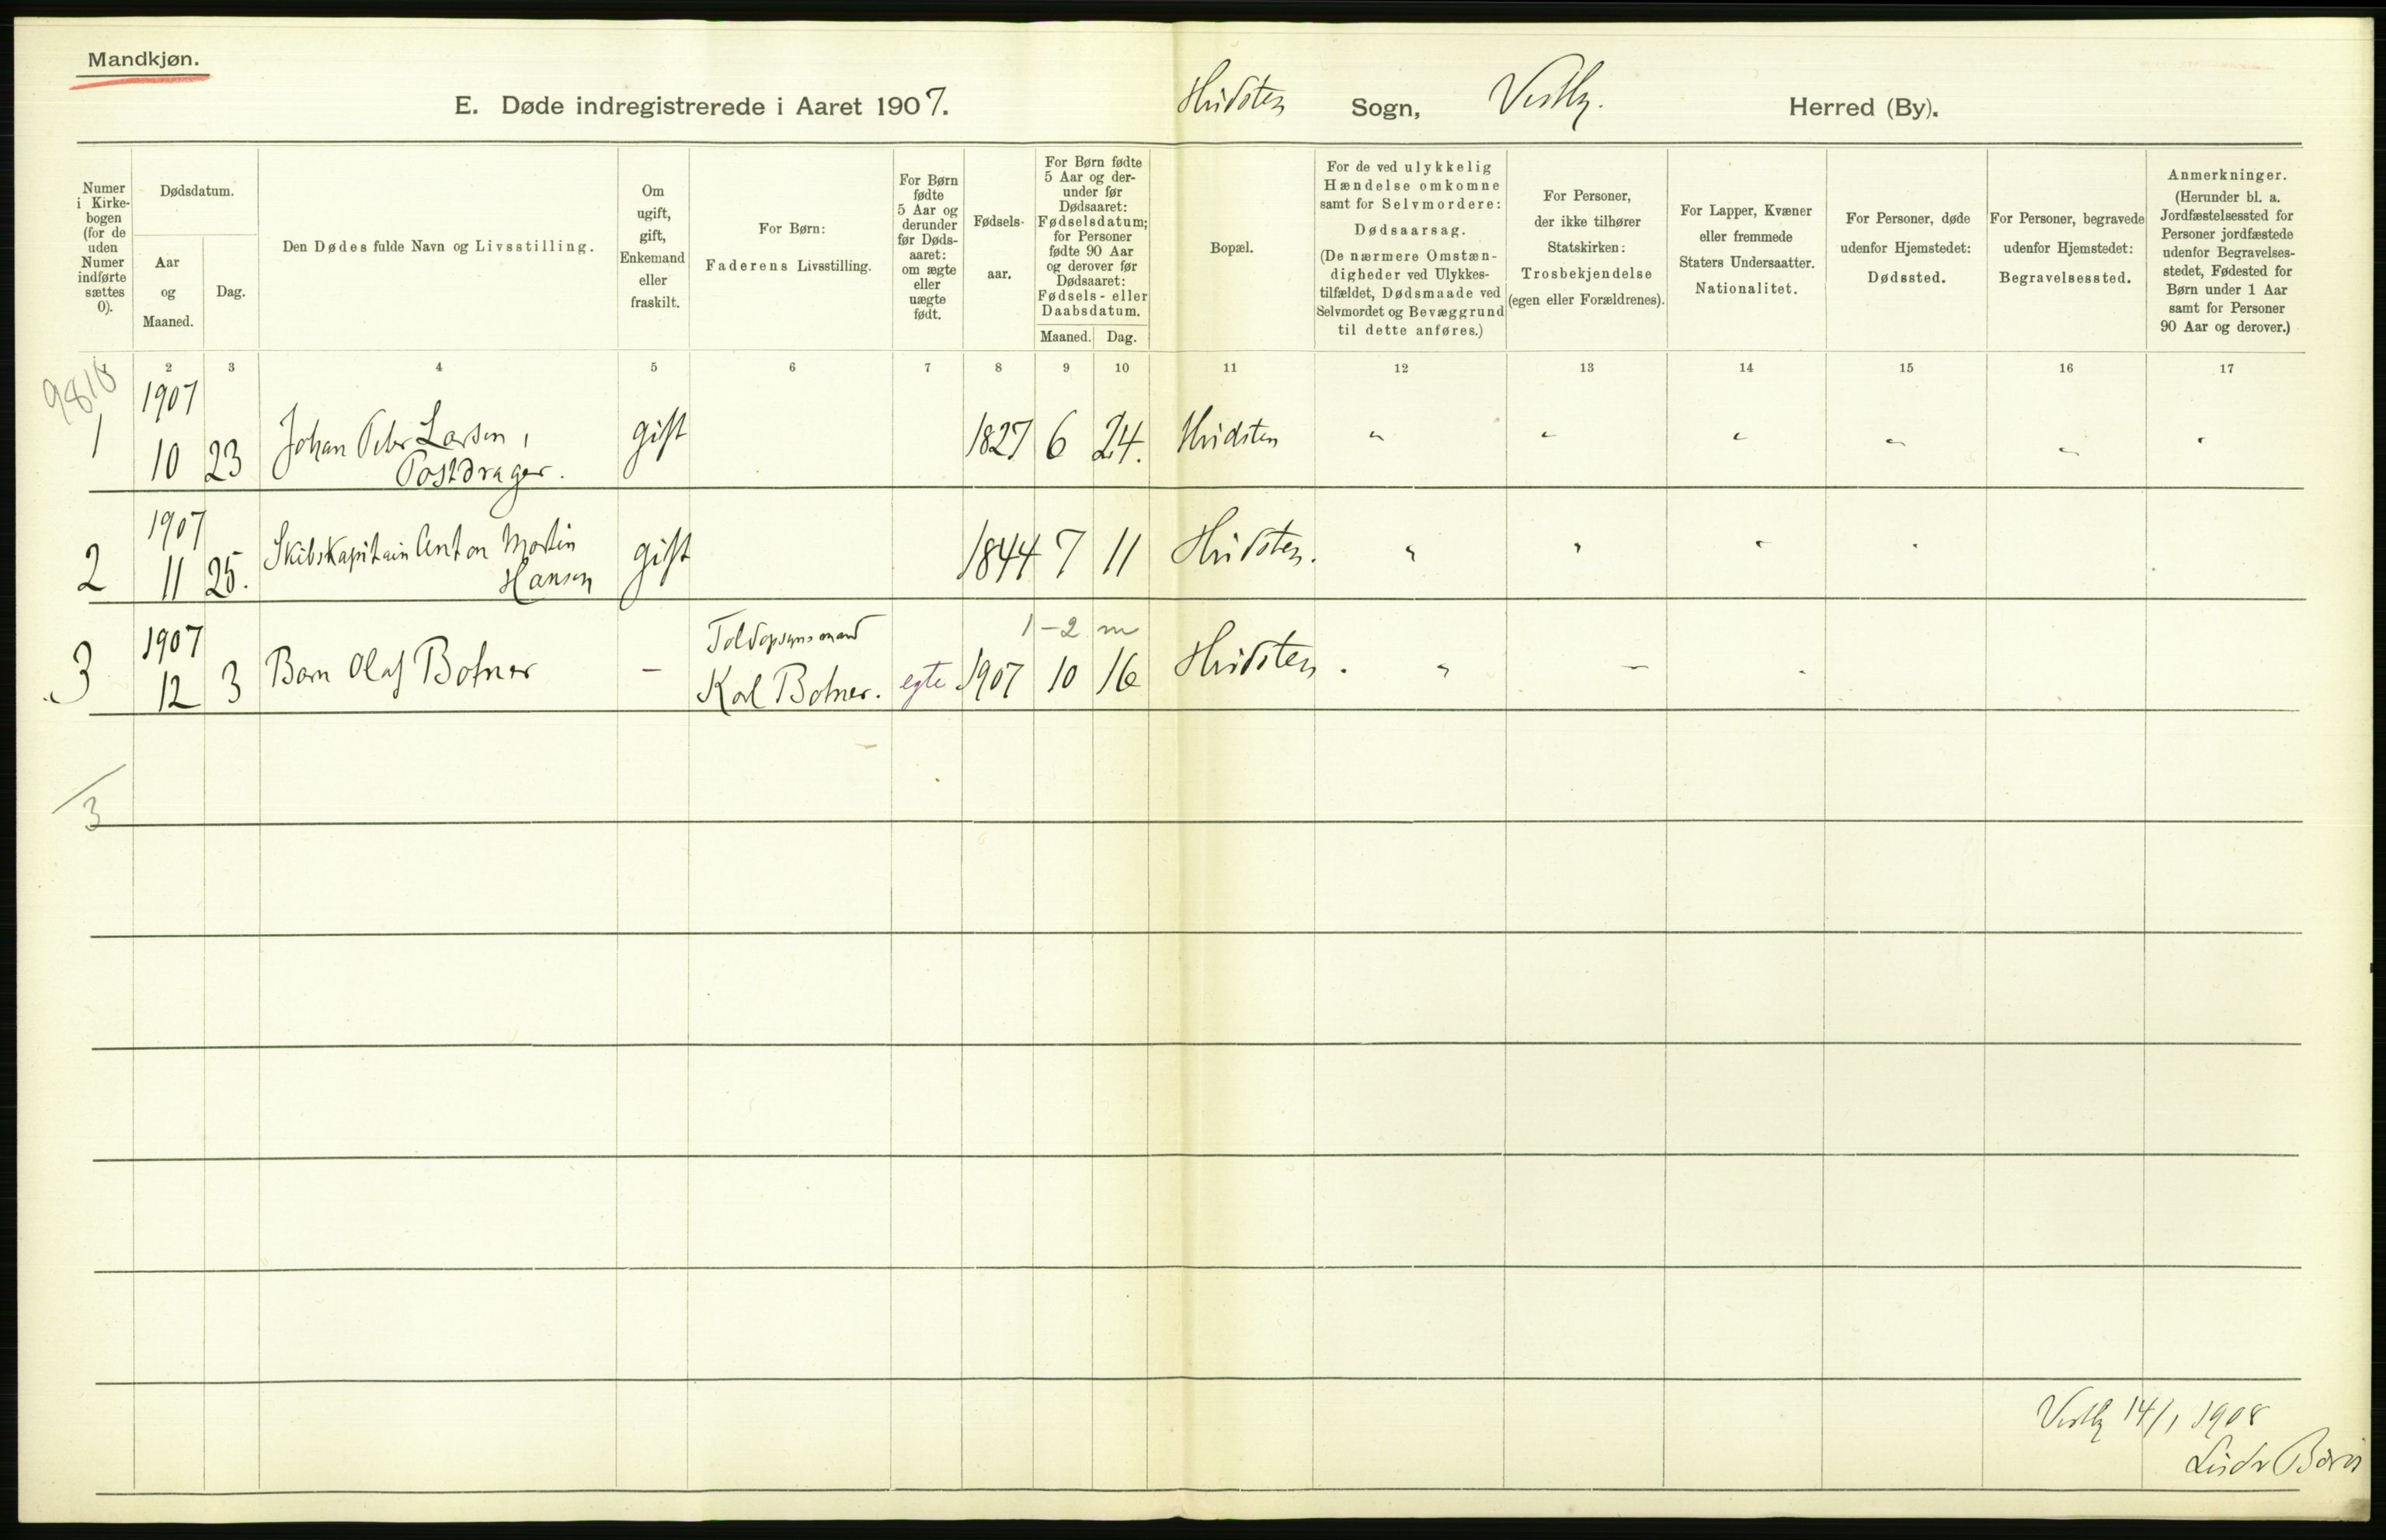 Mandkjøn.
E. Døde indregistrerede i Aaret 1907. Hvidsten Sogn, Vestby. Herred (By).
Numer i Kirke- bogen (for de uden Numer indførte sættes 0).
Dødsdatum.
Aar og Maaned.
Dag.
Den Dødes fulde Navn og Livsstilling.
Om ugift, gift, Enkemand eller fraskilt.
For Børn:
Faderens Livsstilling.
For Børn fødte 5 Aar og derunder før Døds- aaret: om ægte eller uægte født.
Fødsels- aar.
For Børn fødte 5 Aar og der- under før Dødsaaret: Fødselsdatum; for Personer fødte 90 Aar og derover før Dødsaaret: Fødsels- eller Daabsdatum.
Maaned. Dag.
Bopæl.
For de ved ulykkelig Hændelse omkomne samt for Selvmordere:
Dødsaarsag.
(De nærmere Omstæn- digheder ved Ulykkes- tilfældet, Dødsmaade ved Selvmordet og Bevæggrund til dette anføres.)
For Personer, der ikke tilhører Statskirken:
Trosbekjendelse
(egen eller Forældrenes).
For Lapper, Kvæner eller fremmede Staters Undersaatter.
Nationalitet.
For Personer, døde udenfor Hjemstedet:
Dødssted.
For Personer, begravede udenfor Hjemstedet:
Begravelsessted.
Anmerkninger.
(Herunder bl. a. Jordfæstelsessted for Personer jordfæstede udenfor Begravelses- stedet, Fødested for Børn under 1 Aar samt for Personer 90 Aar og derover.)
2 3 4 5 6 7 8 9 10 11 12 13 14 15 16 17
9818
1907
1 10 23 Johan Peter Larsen, gift 1827 6 24. Hvidsten " " " " " "
Postdrager.
1907
2 11 25. Skibskapitain Anton Martin gift 1844 7 11 Hvidsten. " " " "
Hansen
1907 Toldopsynsmand 1-2 m
3 12 3 Barn Olaf Botner - Karl Botner. egte 1907 10 16 Hvidsten. " -
3
Vestby 14/1 1908